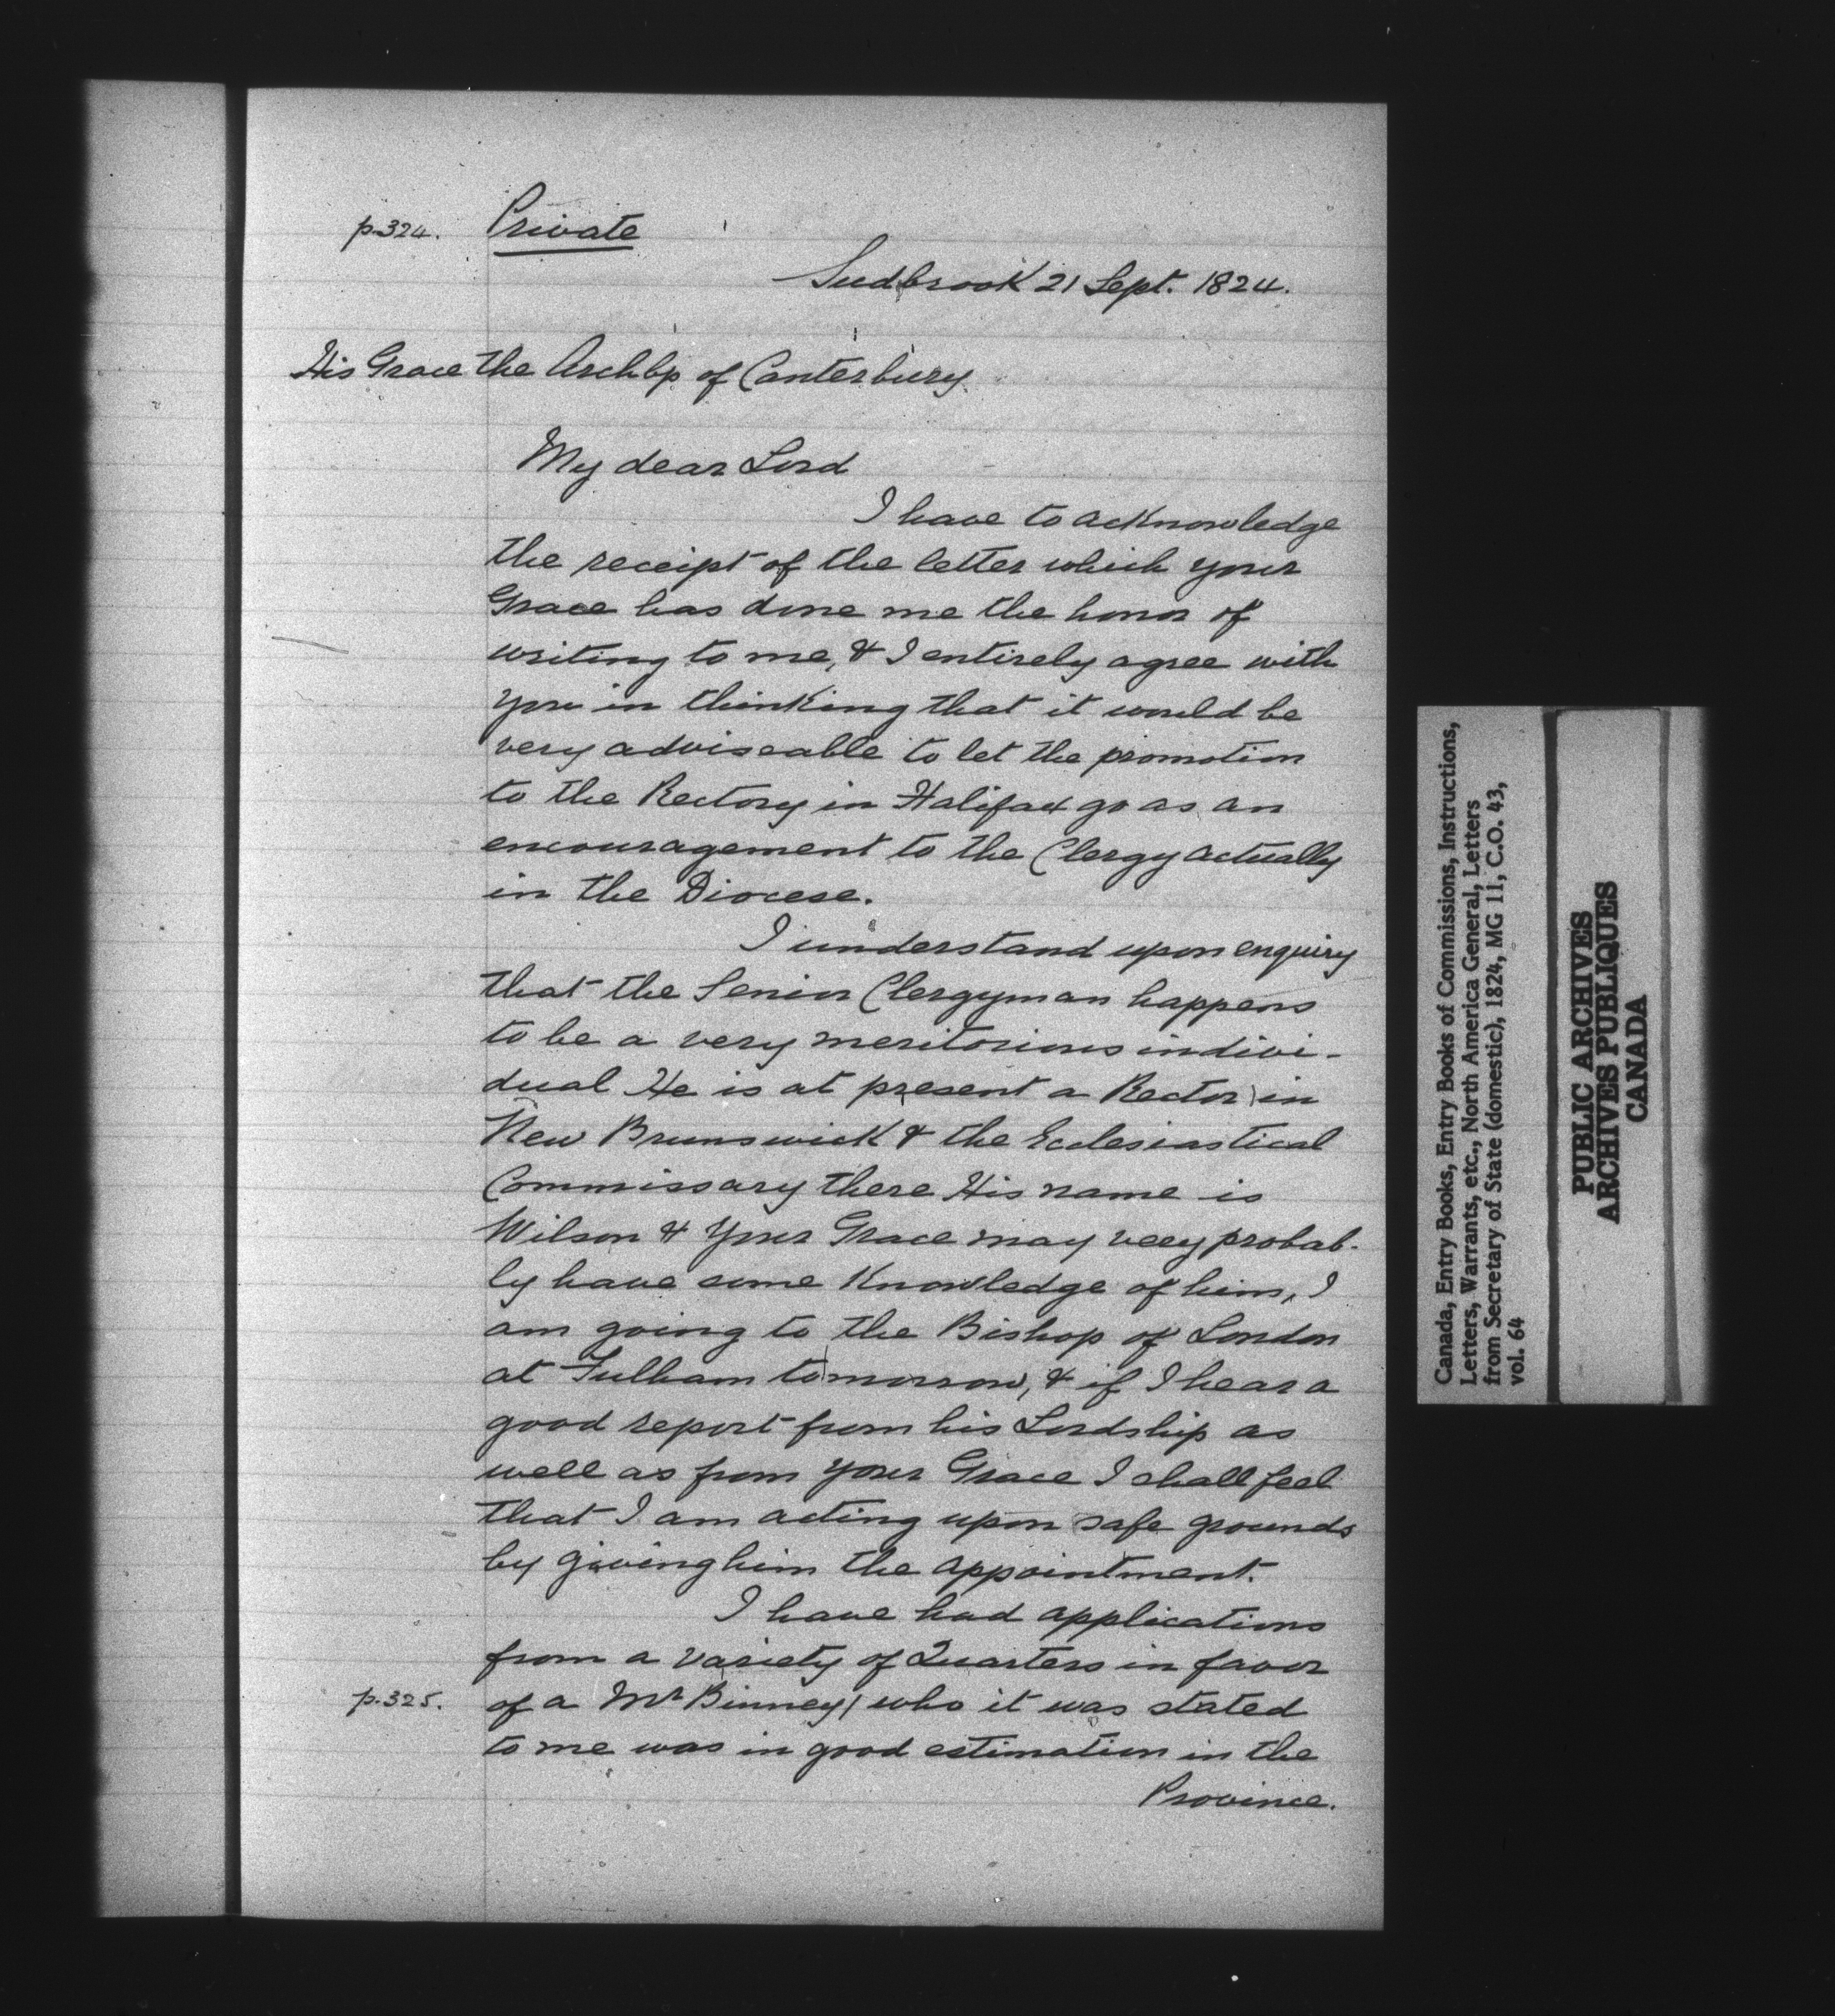 p.324. Private
Sudbrook 21 Sept. 1824.
His Grace the Archbp. of Canterbury.
My dear Lord
I have to acknowledge
the receipt of the letter which your
Grace has done me the honor of
writing to me, & I entirely agree with
you in thinking that it would be
very adviseable to let the promotion
to the Rectory in Halifax go as an
encouragement to the Clergy actually
in the Diocese.
I understand upon enquiry
that the Senior Clergyman happens
to be a very meritorious indivi-
dual He is at present a Rector in
New Brunswick & the Ecclesiastical
Commissary there His name is
Wilson & Your Grace may very probab-
ly have some Knowledge of him, I
am going to the Bishop of London
at Fulham tomorrow, & if I hear a
good report from his Lordship as
well as from your Grace I shall feel
that I am acting upon safe grounds
by giving him the appointment.
I have had applications
from a variety of Quarters in favor
p.325. of a Mr Binney/ who it was stated
to me was in good estimation in the
Province.
Canada, Entry Books, Entry Books of Commissions, Instructions,
Letters, Warrants, etc., North America General, Letters
from Secretary of State (domestic), 1824, MG 11, C.O. 43,
vol. 64
PUBLIC ARCHIVES
ARCHIVES PUBLIQUES
CANADA